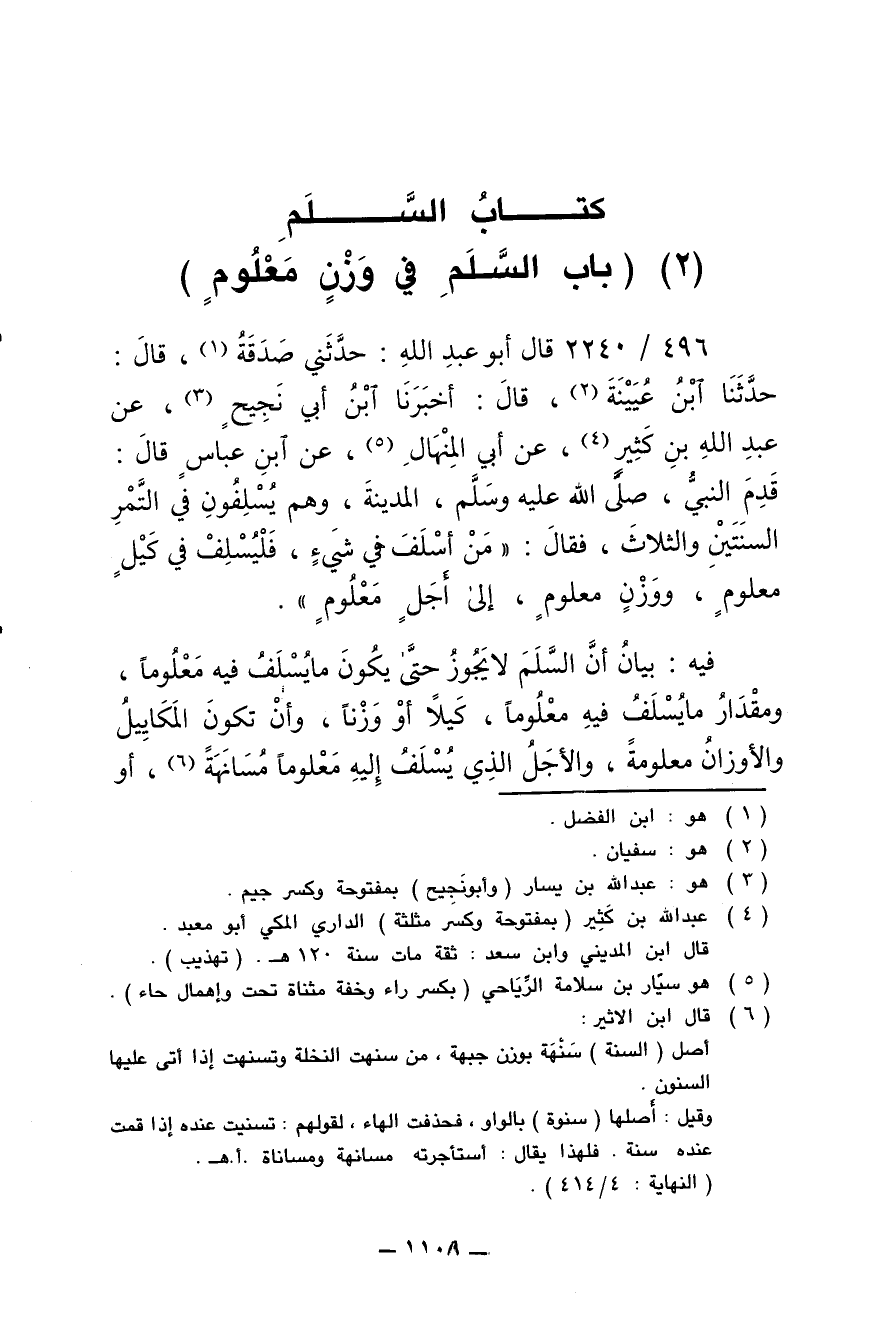 كتــــابُ السَّـــــلَمِ
(٢) ( باب السَّـلَمِ في وَزْنٍ مَعْلُومٍ )
٤٩٦ / ٢٢٤٠ قال أبو عبدِ اللهِ : حدَّثَني صَدَقَةُ (١) ، قالَ :
حدَّثَنَا ٱبْنُ عُيَيْنَةَ (٢) ، قالَ : أخبَرَنَا ٱبْنُ أبي نَجِيحٍ (٣) ، عن
عبدِ اللهِ بنِ كَثِيرٍ (٤) ، عن أبي المِنْهَالِ (٥) ، عن ٱبنِ عباسٍ قالَ :
قَدِمَ النبيُّ ، صلَّى الله عليه وسَلَّم ، المدينةَ ، وهم يُسْلِفُونِ في التَّمْرِ
السنَتَيْنِ والثلاثَ ، فقالَ : « مَنْ أسْلَفَ في شيَءٍ ، فَلْيُسْلِفْ في كَيْلٍ
معلومٍ ، ووَزْنٍ معلومٍ ، إلىٰ أَجَلٍ مَعْلُومٍ » .
فيه : بيانُ أنَّ السَّلَمَ لايَجُوزُ حتَّىٰ يكُونَ مايُسْلَفُ فيه مَعْلُوماً ،
ومقْدَارُ مايُسْلَفُ فيهِ معْلُوماً ، كَيلًا أوْ وَزْناً ، وأنْ تكونَ المَكَايِيلُ
والأوْزانُ معلومةً ، والأجَلُ الذِي يُسْلَفُ إليهِ مَعْلوماً مُسَانَهَةً (٦) ، أو
(١) هو : ابن الفضل .
(٢) هو : سفيان .
(٣) هو : عبدالله بن يسار ( وأبونَجِيح ) بمفتوحة وكسر جيم .
(٤) عبدالله بن كَثِير ( بمفتوحة وكسر مثلثة ) الداري المكي أبو معبد .
قال ابن المديني وابن سعد : ثقة مات سنة ١٢٠ هـ . ( تهذيب ) .
(٥) هو سيّار بن سلامة الرِّيَاحي ( بكسر راء وخفة مثناة تحت وإهمال حاء ) .
(٦) قال ابن الاثير :
أصل ( السنة ) سَنْهَة بوزن جبهة ، من سنهت النخلة وتسنهت إذا أتى عليها
السنون .
وقيل : أَصلها ( سنوة ) بالواو ، فحذفت الهاء ، لقولهم : تسنيت عنده إذا قمت
عنده سنة . فلهذا يقال : أستأجرته مسانهة ومساناة .أ.هـ .
( النهاية : ٤١٤/٤ ) .
ــ ١١٠٨ ــ